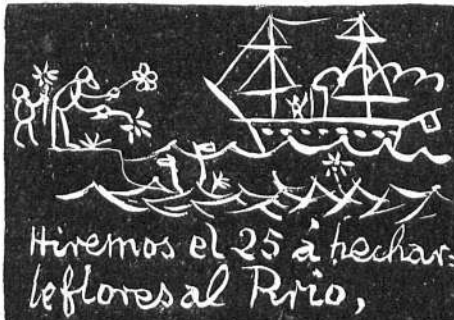 Hiremos el 25 á hechar=
leflores al Rrio,